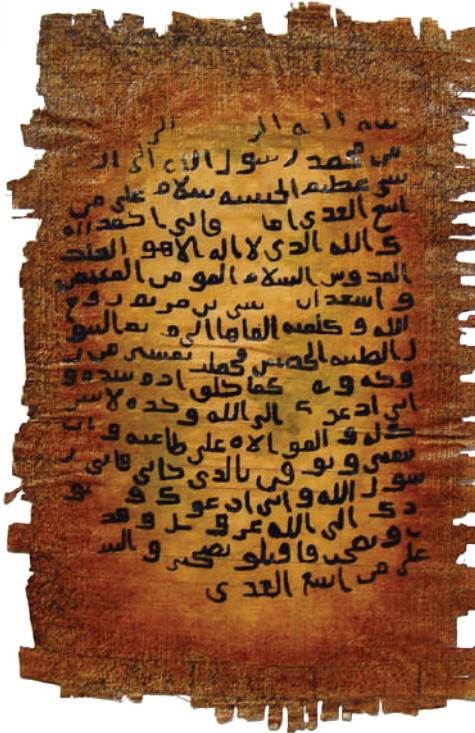 الر الر
من محمد رسول الله الى ال
سى عظيم الحبشه سلام على من
اتبع الهدى اما فانى احمد
ك الله الذى لا اله الا هو الملك
القدوس السلام المومن المهيمن
و اشهد ان بن مريم روح
الله و كلمته القاها الى البتو
ل الطيبه الحصين فحملت بعيسى من ر
وحه و كما خلق ادم بيده و
انى ادعوك الى الله وحده لا شر
يك له و الموالاه على طاعته و ان
تتبعنى و بالذى جانى فانى ر
سول الله و انى ادعوك و
دك الى الله عز و جل و قد
و نصحت فاقبلو و السـ
على من اتبع الهدى